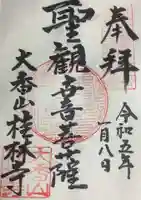 奉拝
令和五年
一月八日
聖観世音菩薩
大香山桂林寺